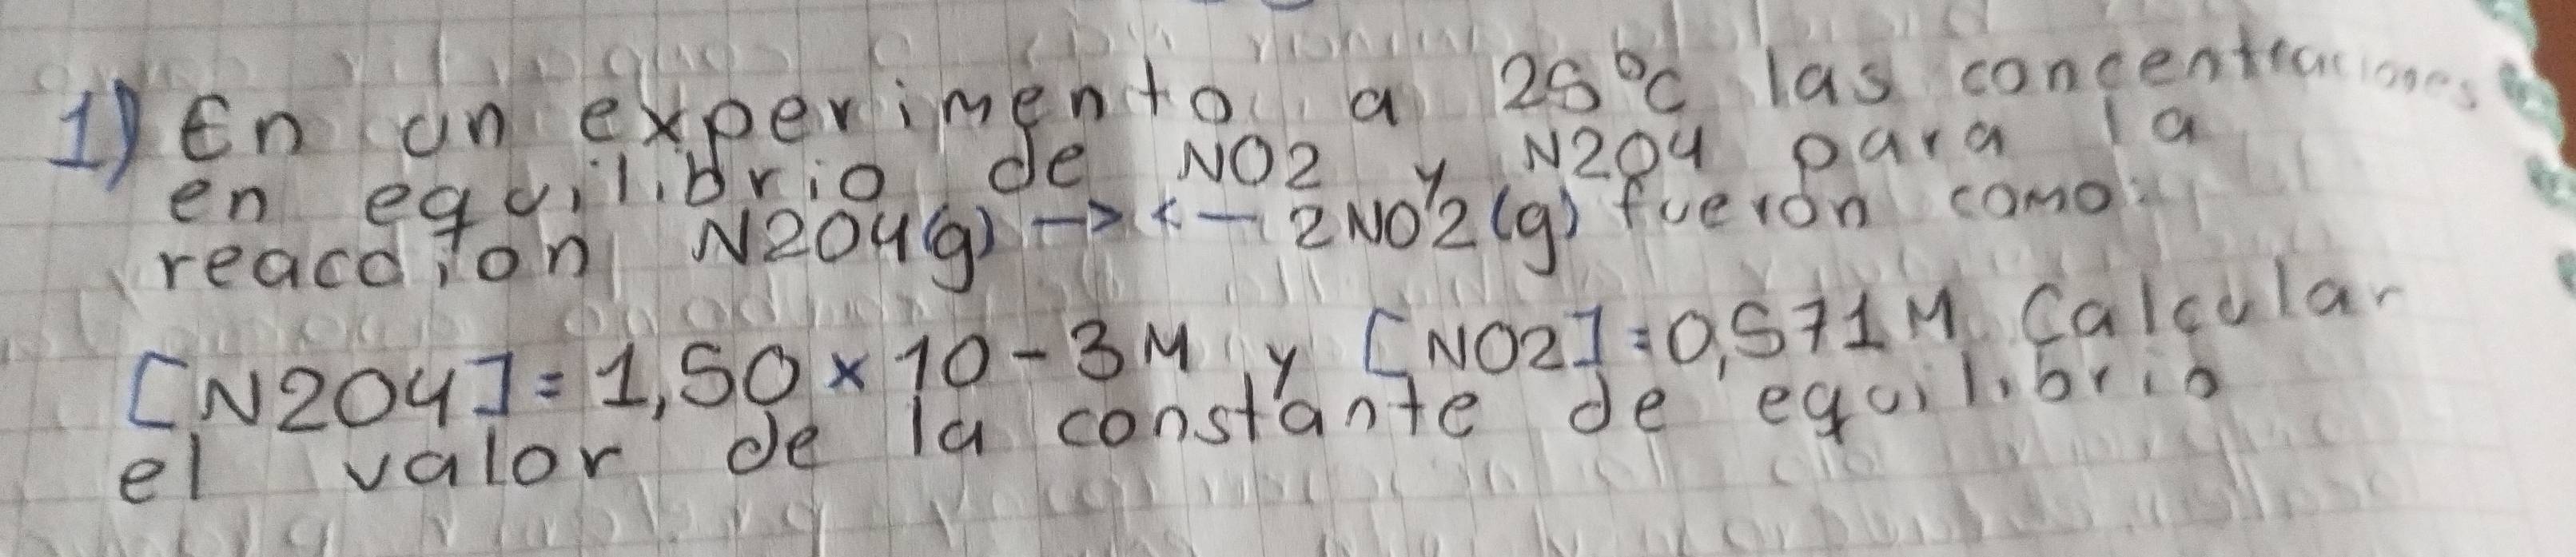 1) En un experimento a 25°C las concentraciones
en equilibrio de NO2 y N2O4 para la
reaccion N2O4(g) -> <- 2NO2(g) fueron como:
[N2O4] = 1,50 x 10 - 3M y [NO2] = 0,571M. Calcular
el valor de la constante de equilibrio